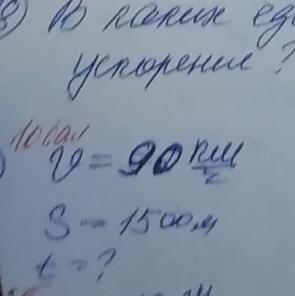 8) В каких
ускорение?
10 бал
υ = 90 км/ч
S = 1500 м
t = ?